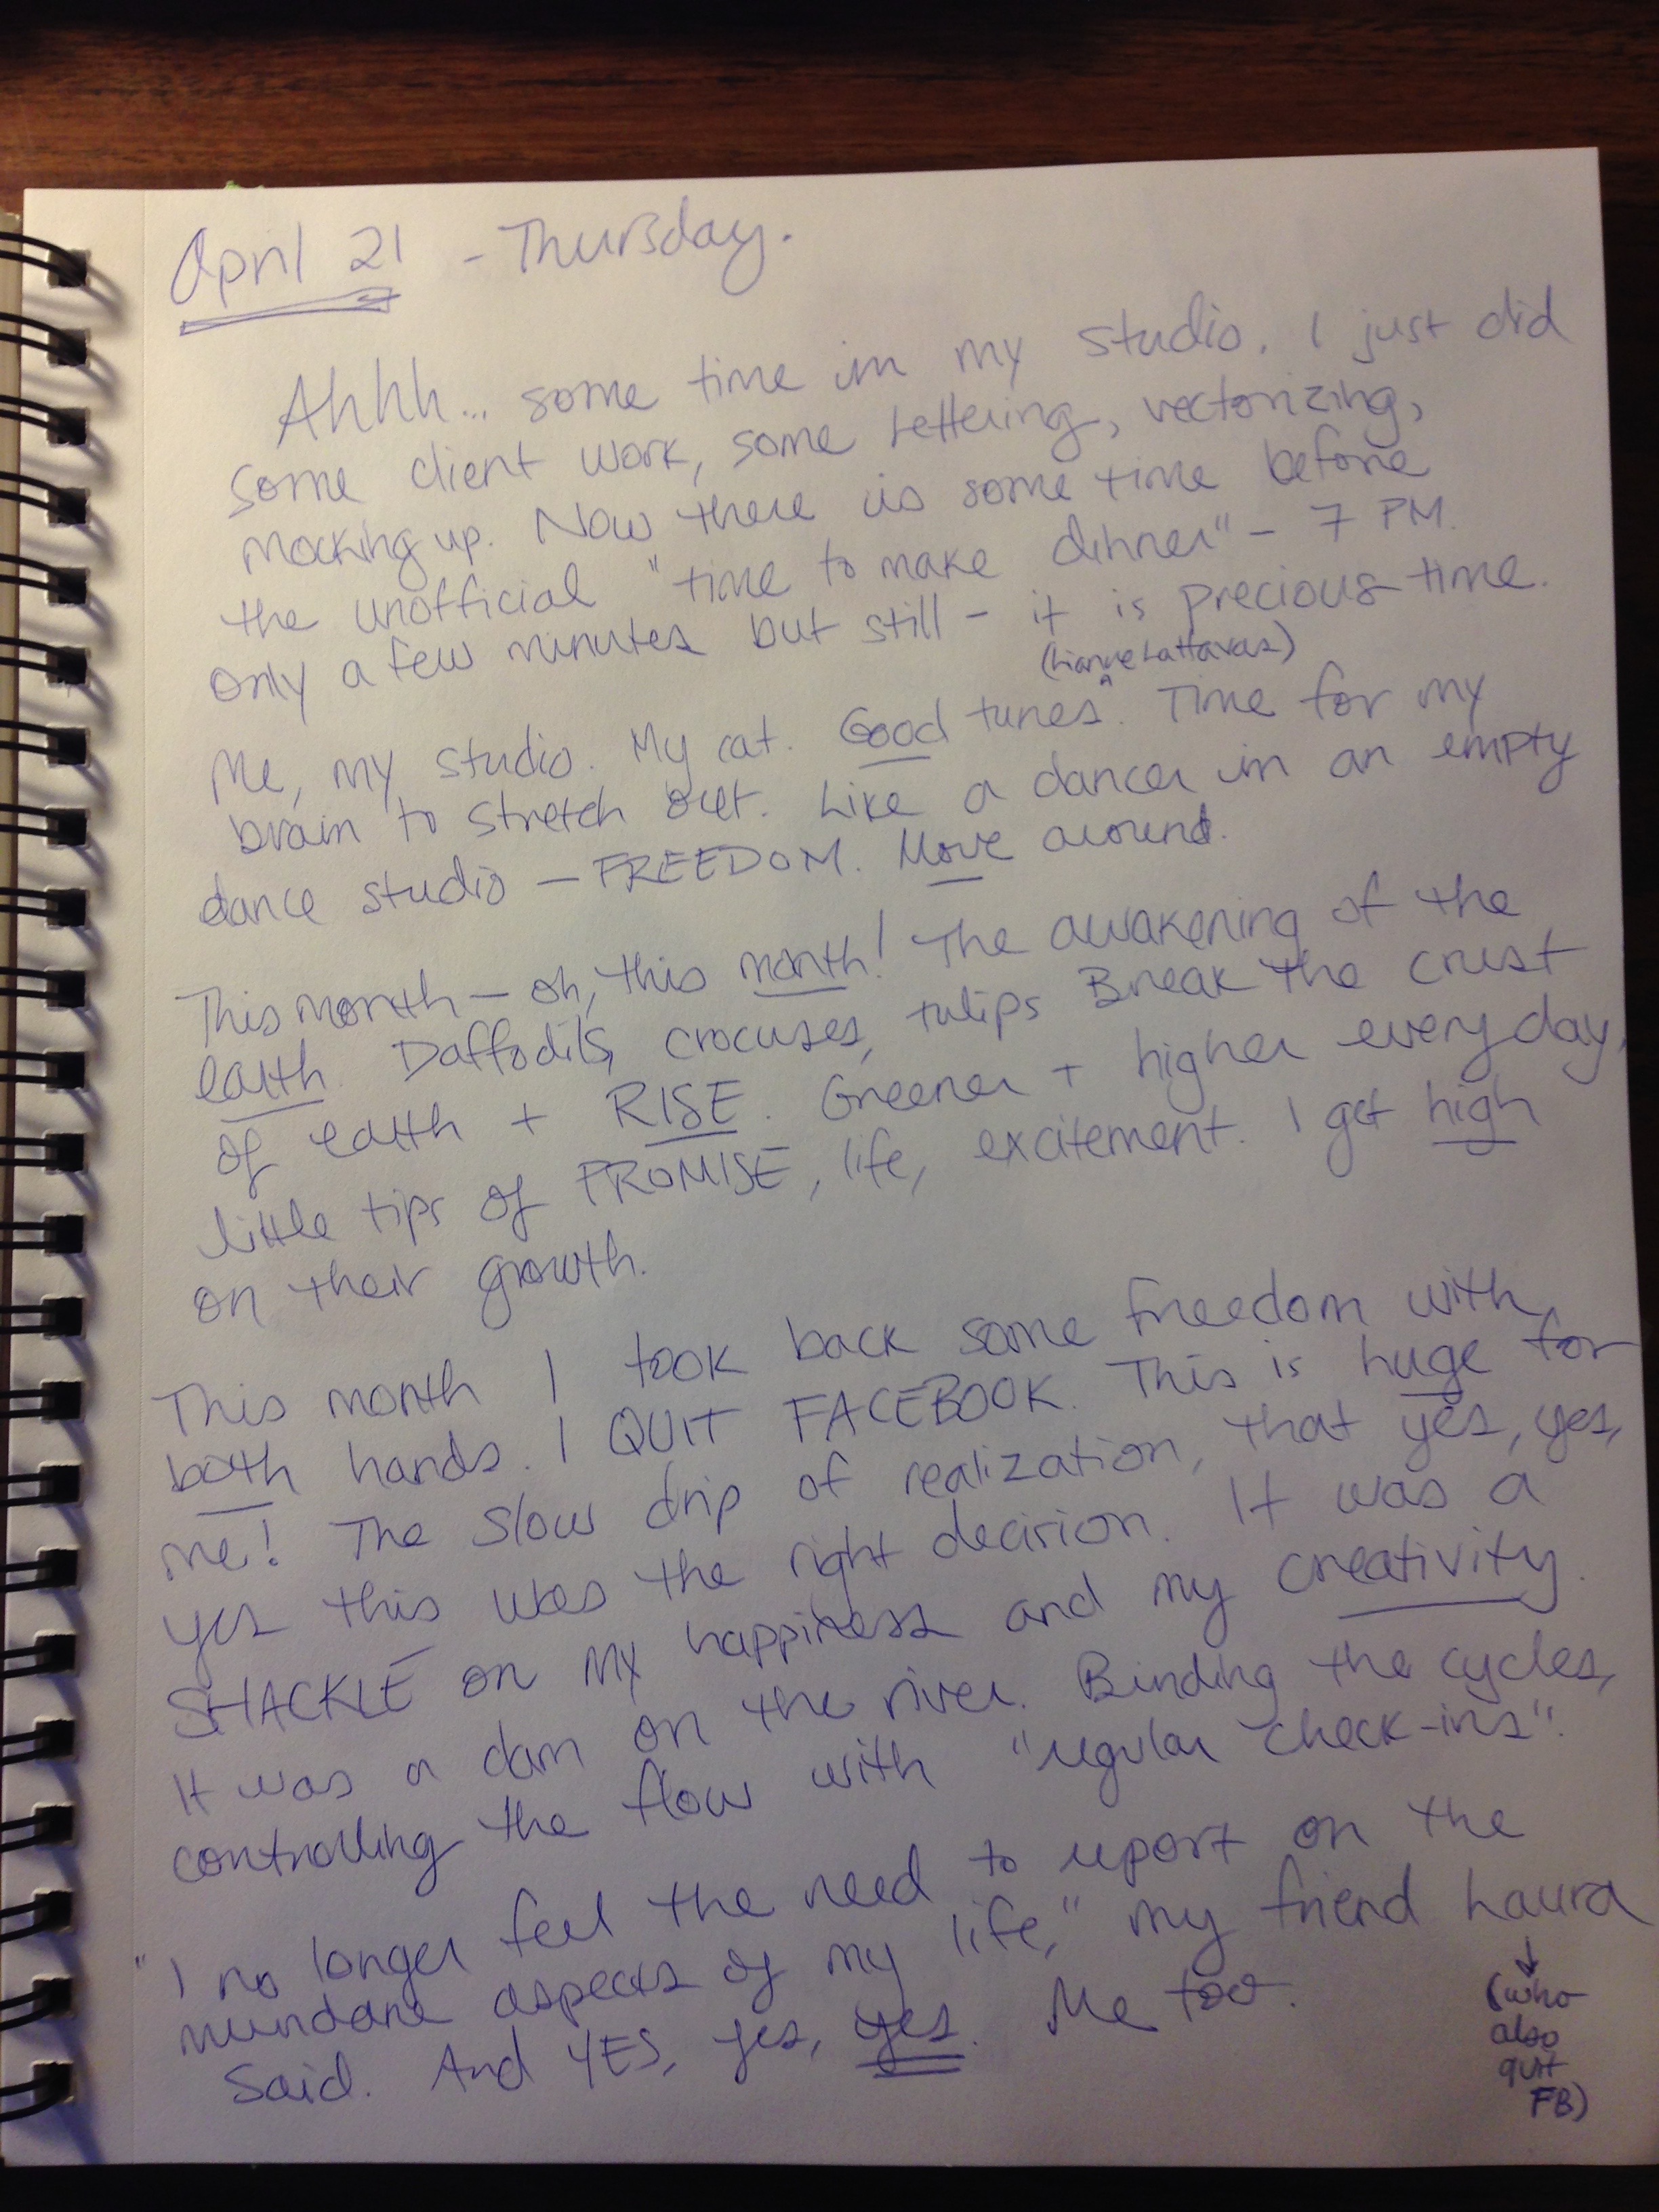 April 21 - Thursday.
Ahhh... some time in my studio. I just did
some client work, some lettering, vectorizing,
mocking up. Now there is some time before
the unofficial "time to make dinner" - 7 PM.
Only a few minutes but still - it is precious time.
(Lianne LaHavas)
Me, my studio. My cat. Good tunes. Time for my
brain to stretch out. Like a dancer in an empty
dance studio - FREEDOM. Move around.
This month - oh, this month! The awakening of the
earth. Daffodils, crocuses, tulips Break the crust
of earth + RISE. Greener + higher every day,
little tips of PROMISE, life, excitement. I get high
on their growth.
This month I took back some freedom with
both hands. I QUIT FACEBOOK. This is huge for
me! The slow drip of realization, that yes, yes,
yes this was the right decision. It was a
SHACKLE on my happiness and my creativity.
It was a dam on the river. Binding the cycles,
controlling the flow with "regular check-ins".
"I no longer feel the need to report on the
mundane aspects of my life," my friend Laura
said. And YES, yes, yes. Me too.
(who
also
quit
FB)